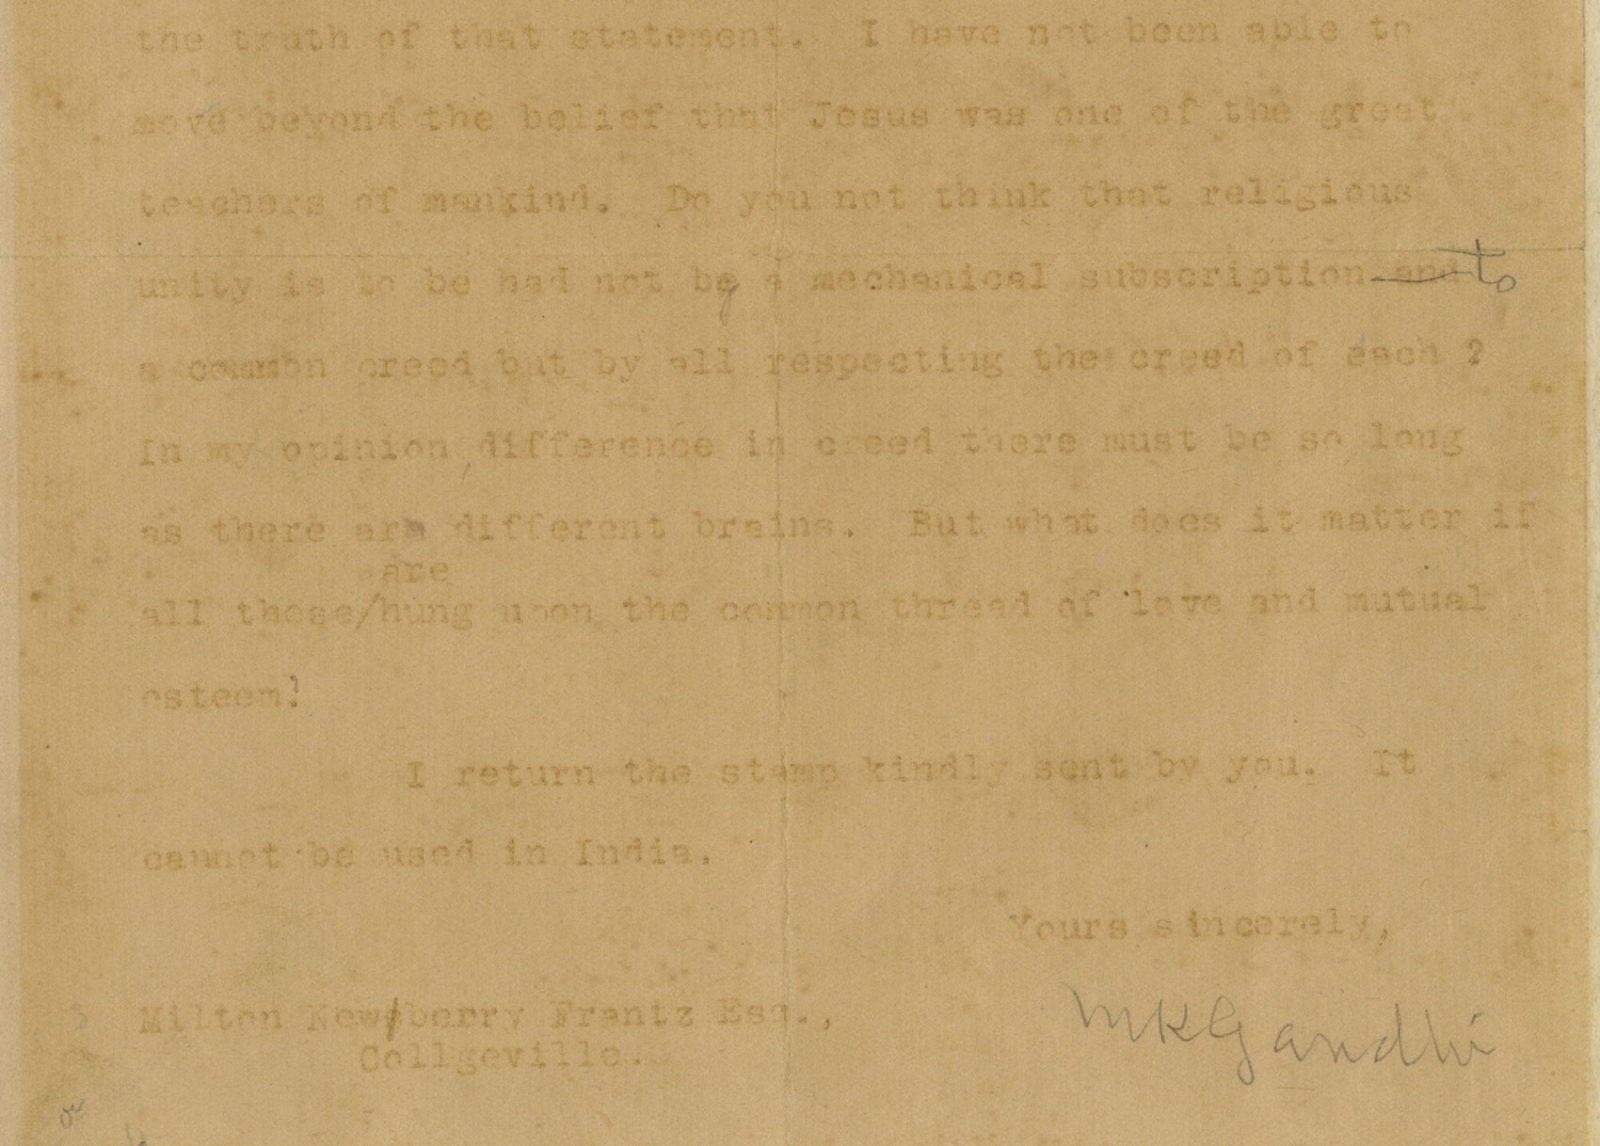 the truth of that statement. I have not been able to
move beyond the belief that Jesus was one of the great
teachers of mankind. Do you not think that religious
unity is to be had not by a mechanical subscription and to
a common creed but by all respecting the creed of each ?
In my opinion, difference in creed there must be so long
as there are different brains. But what does it matter if
are
all these/hung upon the common thread of love and mutual
esteem?
I return the stamp kindly sent by you. It
cannot be used in India.
Yours sincerely,
MKGandhi
Milton Newberry Frantz Esq.,
Collgeville.